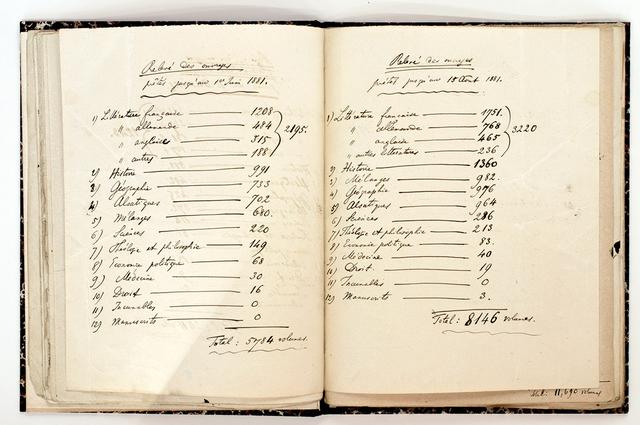 Relevé des ouvrages
prêtés jusqu'au 1er Juin 1881.
1) Littérature française 1208
" allemande 484
" anglaise 315
" autres 188
2195.
2) Histoire 991
3) Géographie 733
4) Alsatiques 702
5) Mélanges 680.
6) Sciences 220
7) Théologie et philosophie 149
8) Economie politique 68
9) Médecine 30
10) Droit 16
11) Incunables 0
12) Manuscrits 0
Total : 5784 volumes.
Relevé des ouvrages
prêtés jusqu'au 15 Août 1881.
1) Littérature française 1751.
" allemande 768
" anglaise 465
" autres littératures 236
3220
2) Histoire 1360
3) Mélanges 982.
4) Géographie 976
5) Alsatiques 964
6) Sciences 286
7) Théologie et philosophie 213
8) Economie politique 83.
9) Médecine 40
10) Droit 19
11) Incunables 0
12) Manuscrits 3.
Total : 8146 volumes.
11,690 volumes